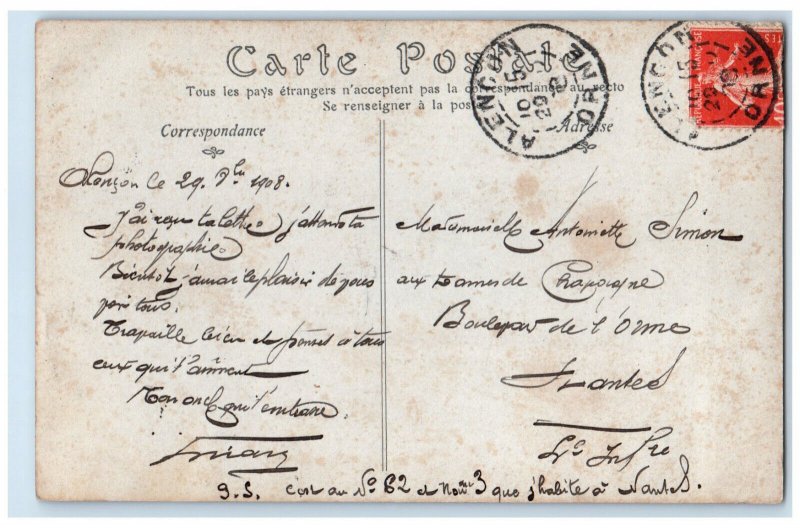 Carte Postale
Tous les pays étrangers n'acceptent pas la correspondance au recto
Se renseigner à la poste
Correspondance
Adresse
ALENCON
ORNE
ALENCON
ORNE
Alençon le 29. 1908.
J'ai reçu ta lettre j'attends ta
photographie
Bientôt j'aurai le plaisir de vous
voir tous.
Travaille bien et penses à tous
ceux qui t'aiment
Ton oncle qui t'embrasse
Mademoiselle Antoinette Simon
aux Dames de Chavagne
Boulevar de l'Orme
Nantes
Lre Infre
P.S. c'est au No 62 et non 3 que j'habite à Nantes.